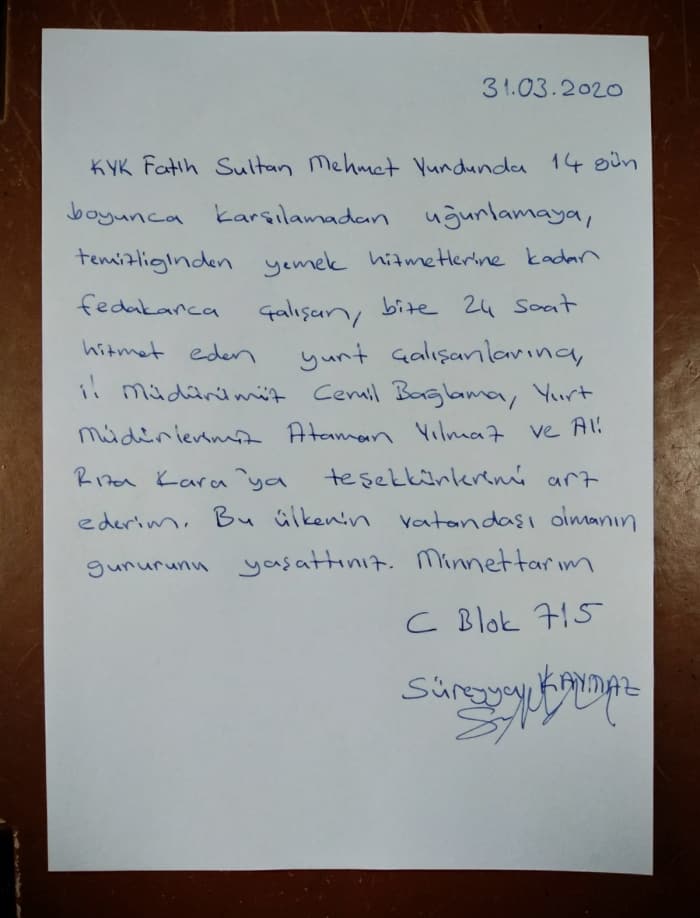 31.03.2020
KYK Fatih Sultan Mehmet Yurdunda 14 gün
boyunca karşılamadan uğurlamaya,
temizliğinden yemek hizmetlerine kadar
fedakarca çalışan, bize 24 saat
hizmet eden yurt çalışanlarına,
il müdürümüz Cemil Bağlama, Yurt
müdürlerimiz Ataman Yılmaz ve Ali
Rıza Kara'ya teşekkürlerimi arz
ederim. Bu ülkenin vatandaşı olmanın
gururunu yaşattınız. Minnettarım
C Blok 715
Süreyya KAYMAZ